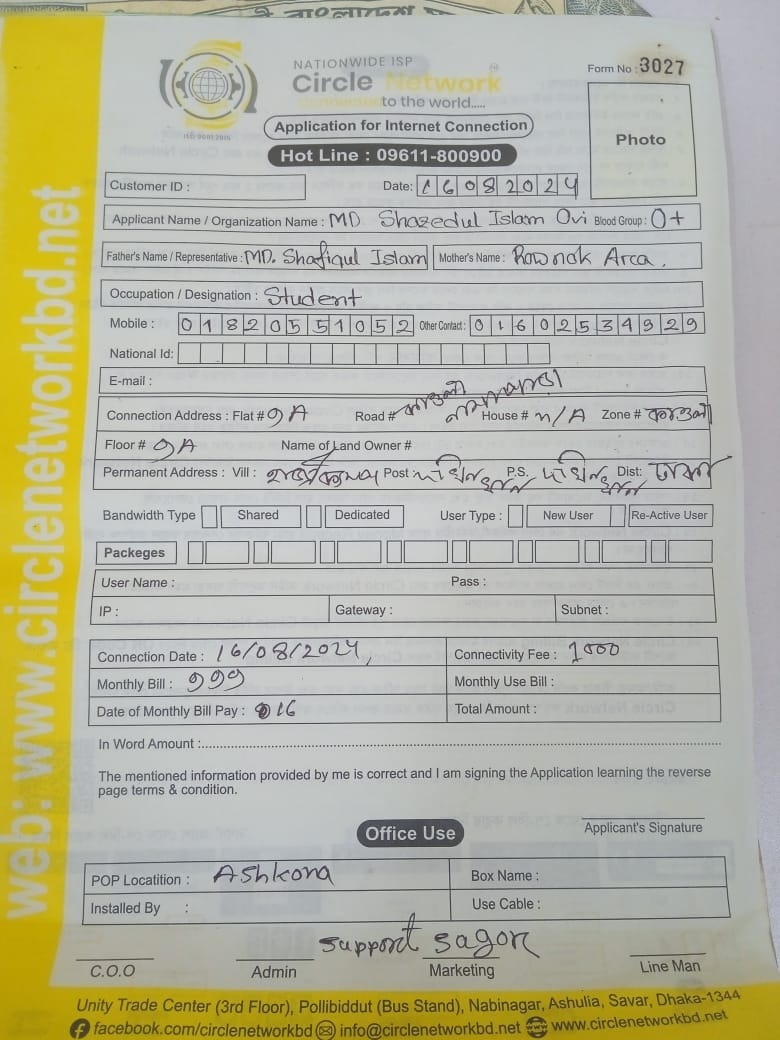 NATIONWIDE ISP
Circle Network
connected to the world.....
ISO 9001:2015
Form No : 3027
Application for Internet Connection
Hot Line : 09611-800900
Photo
Customer ID :
Date: 16082024
Applicant Name / Organization Name : MD Shazedul Islam Ovi Blood Group : O+
Father's Name / Representative : MD. Shafiqul Islam Mother's Name : Rownok Arca.
Occupation / Designation : Student
Mobile : 01820551052 Other Contact : 01602534929
National Id:
E-mail :
Connection Address : Flat # 9A Road # কাওলা নামাপাড়া House # n/A Zone # কাওলা
Floor # 9A Name of Land Owner #
Permanent Address : Vill : Post : দক্ষিনখান P.S. দক্ষিনখান Dist: ঢাকা
Bandwidth Type Shared Dedicated User Type : New User Re-Active User
Packeges
User Name : Pass :
IP : Gateway : Subnet :
Connection Date : 16/08/2024, Connectivity Fee : 1000
Monthly Bill : 999 Monthly Use Bill :
Date of Monthly Bill Pay : 16 Total Amount :
In Word Amount :
The mentioned information provided by me is correct and I am signing the Application learning the reverse
page terms & condition.
Applicant's Signature
Office Use
POP Locatition : Ashkona Box Name :
Installed By : Use Cable :
support sagor
C.O.O Admin Marketing Line Man
Unity Trade Center (3rd Floor), Pollibiddut (Bus Stand), Nabinagar, Ashulia, Savar, Dhaka-1344
facebook.com/circlenetworkbd info@circlenetworkbd.net www.circlenetworkbd.net
web: www.circlenetworkbd.net